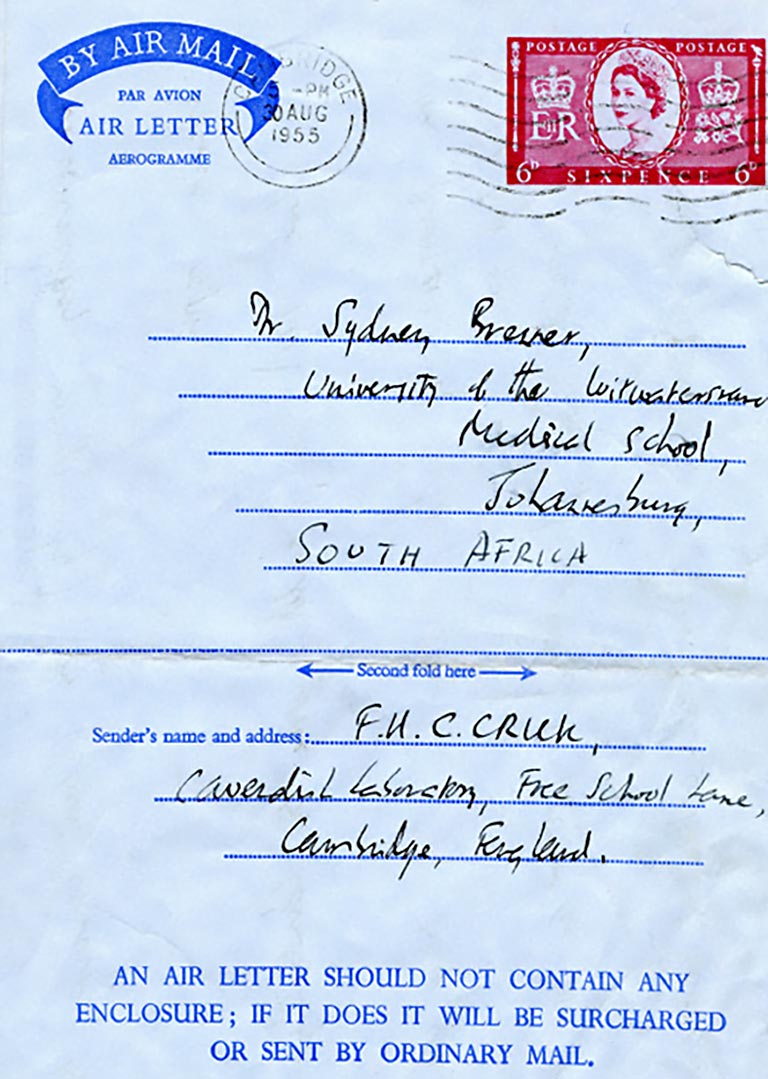 BY AIR MAIL
PAR AVION
AIR LETTER
AEROGRAMME
CAMBRIDGE
-PM
30 AUG
1955
POSTAGE POSTAGE
EIIR
6D SIXPENCE 6D
Dr. Sydney Brenner,
University of the Witwatersrand
Medical School,
Johannesburg,
SOUTH AFRICA
Second fold here
Sender's name and address: F.H.C. CRICK,
Cavendish Laboratory, Free School Lane,
Cambridge, England.
AN AIR LETTER SHOULD NOT CONTAIN ANY
ENCLOSURE; IF IT DOES IT WILL BE SURCHARGED
OR SENT BY ORDINARY MAIL.